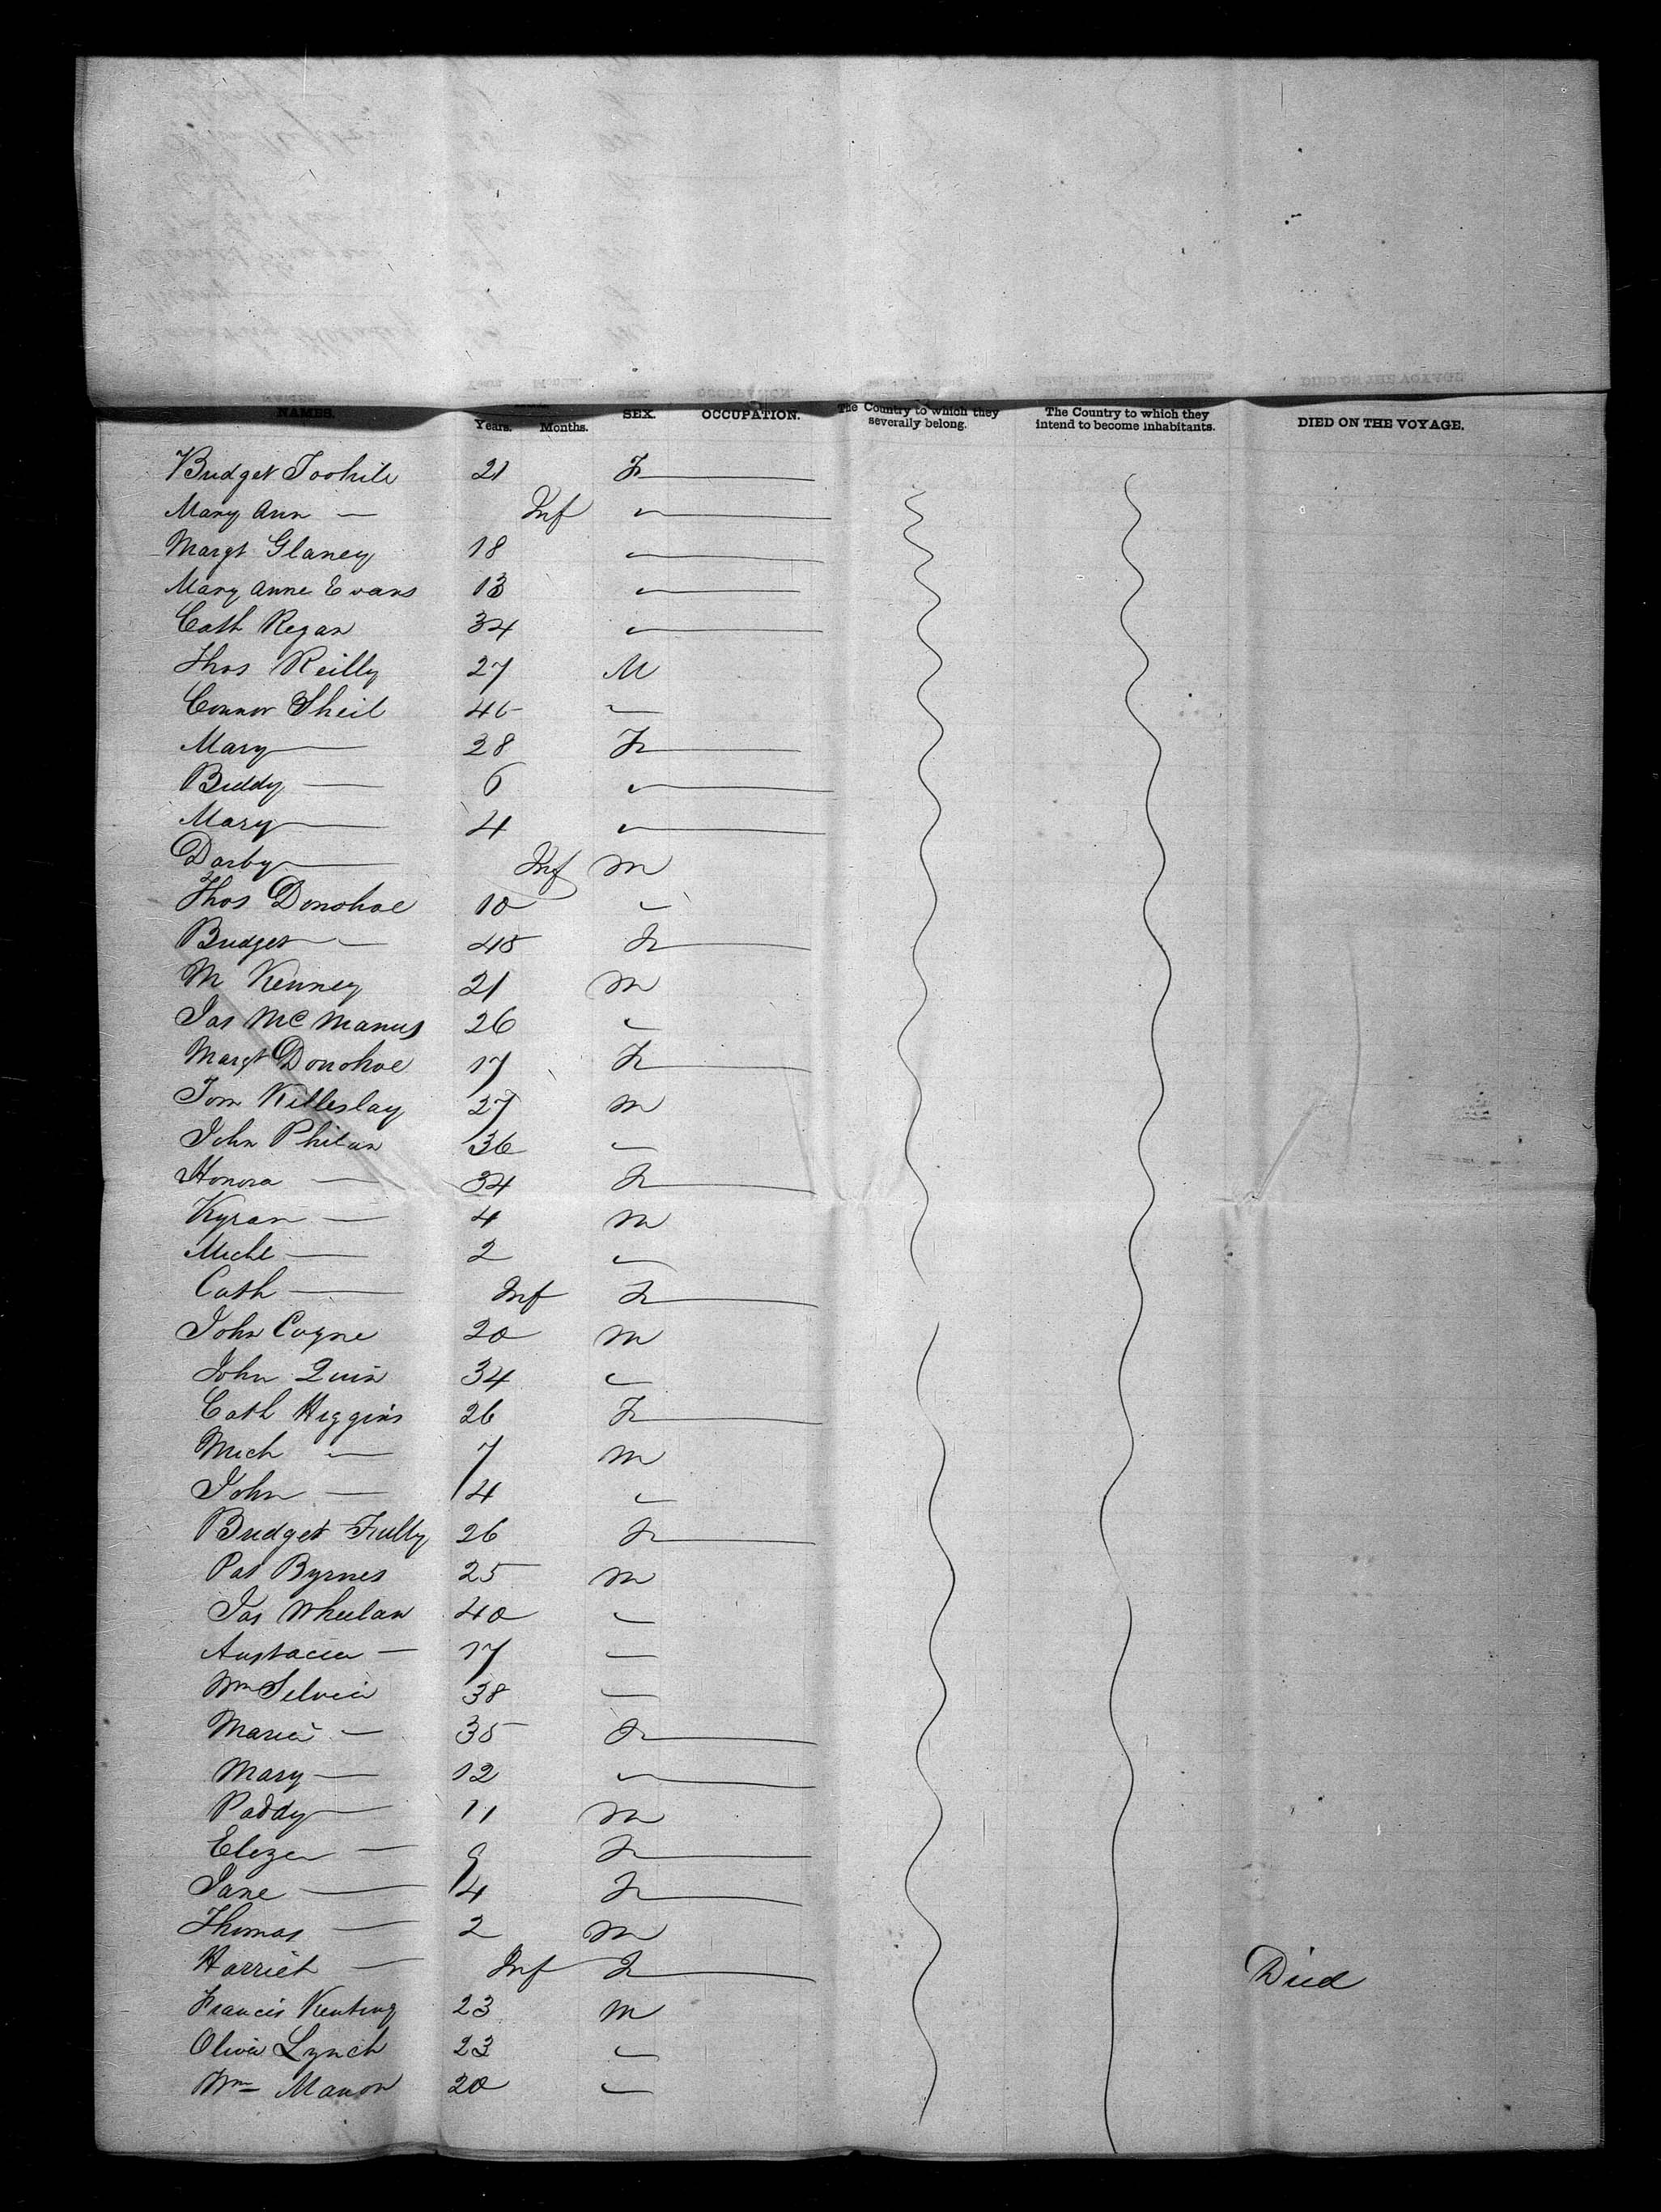 NAMES. Years. Months. SEX. OCCUPATION. The Country to which they severally belong. The Country to which they intend to become inhabitants. DIED ON THE VOYAGE.
Bridget Toohile 21 F
Mary Ann — Inf
Margt Glaney 18
Mary Anne Evans 13
Cath Regan 34
Thos Reilly 27 M
Connor Sheil 45
Mary — 28 F
Biddy — 6
Mary — 4
Darby — Inf M
Thos Donohoe 10
Bridget — 48 F
M Kenney 21 M
Jas McManus 26
Margt Donohoe 17 F
Tom Killeslay 27 M
John Philan 36
Honora — 34 F
Kyran — 4 M
Michl — 2
Cath — Inf F
John Coyne 20 M
John Quin 34
Cath Higgins 26 F
Mich — 7 M
John — 4
Bridget Fully 26 F
Pat Byrnes 25 M
Jas Wheelan 40
— 17
Wm Silvia 38
Maria — 35 F
Mary — 12
Paddy — 11 M
Eliza — 9 F
Jane — 4 F
Thomas — 2 M
Harriet — Inf F Died
Francis Keating 23 M
Olivia Lynch 23
Wm Manon 20